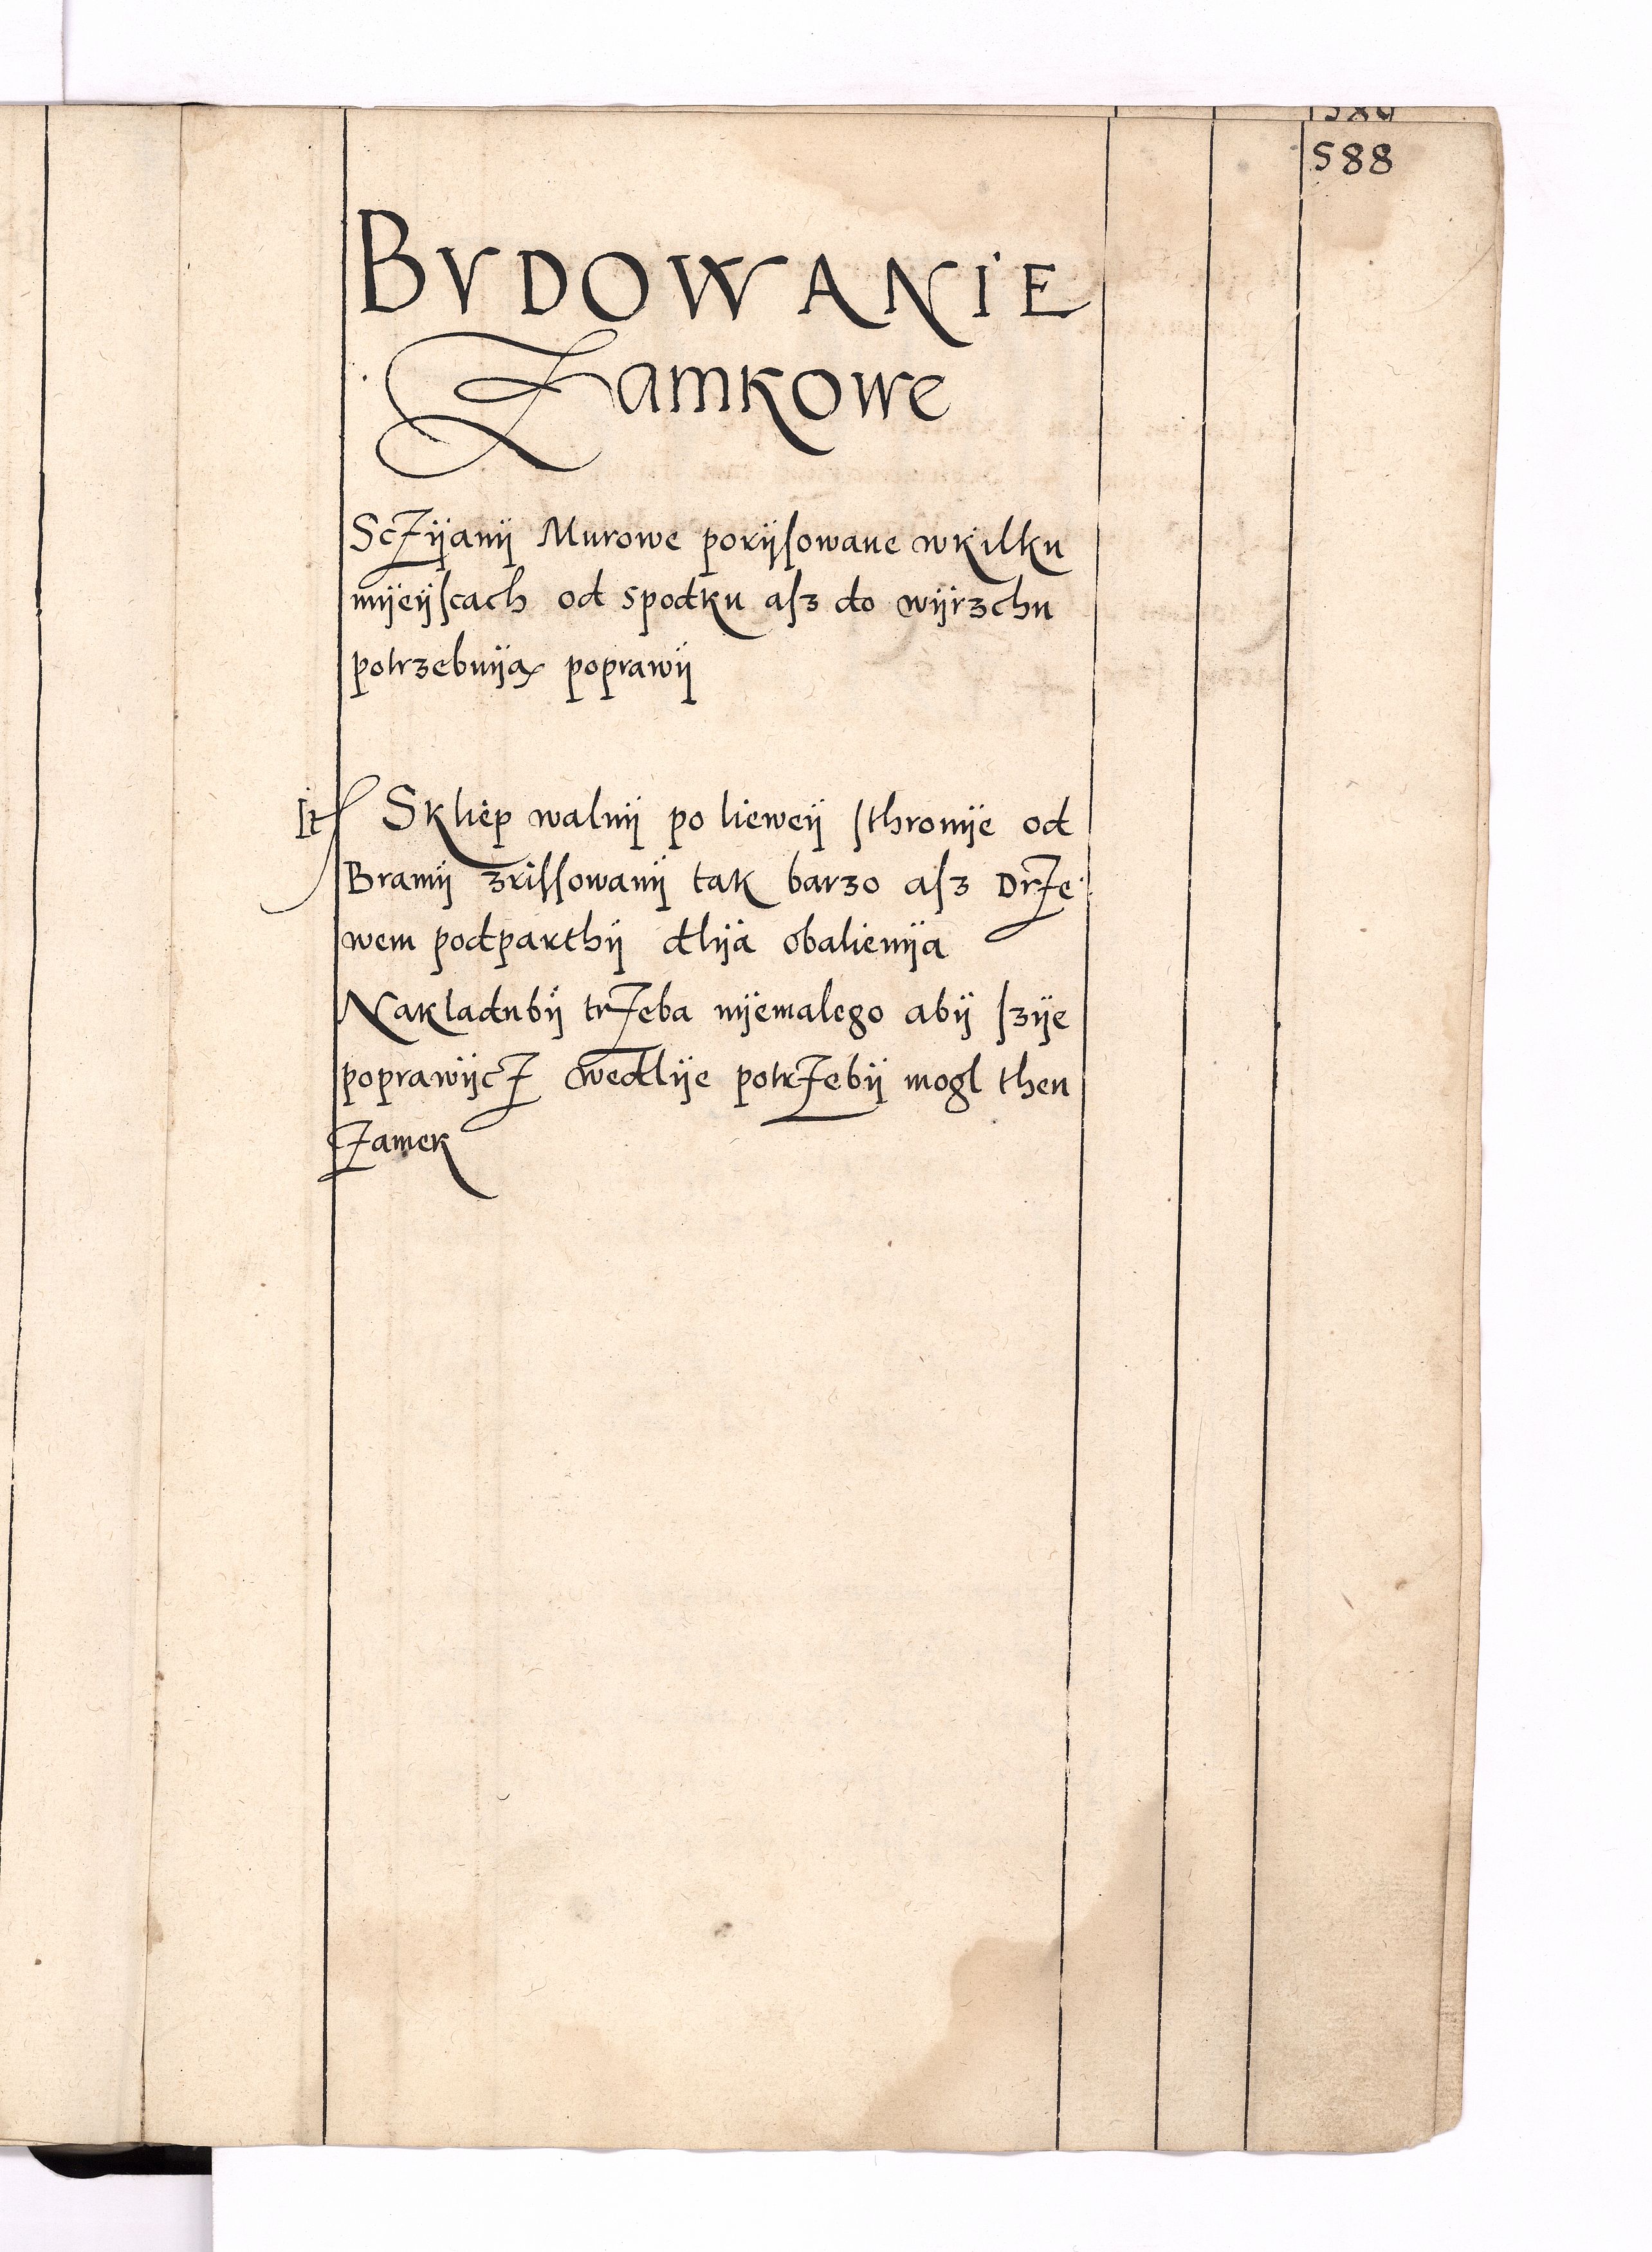 588
BVDOWANIE
Zamkowe
Sczijanij Murowe porijsowane wkilku
mijeijscach od spodku asz do wijrzchu
potrzebuija poprawij
It Skliep walnij po lieweij sthronije od
Bramij zrissowanij tak barzo asz Drze
wem podparthij dlija obalienija
Nakladubij trzeba nijemalego abij szije
poprawijcz wedlije potrzebij mogl then
Zamek